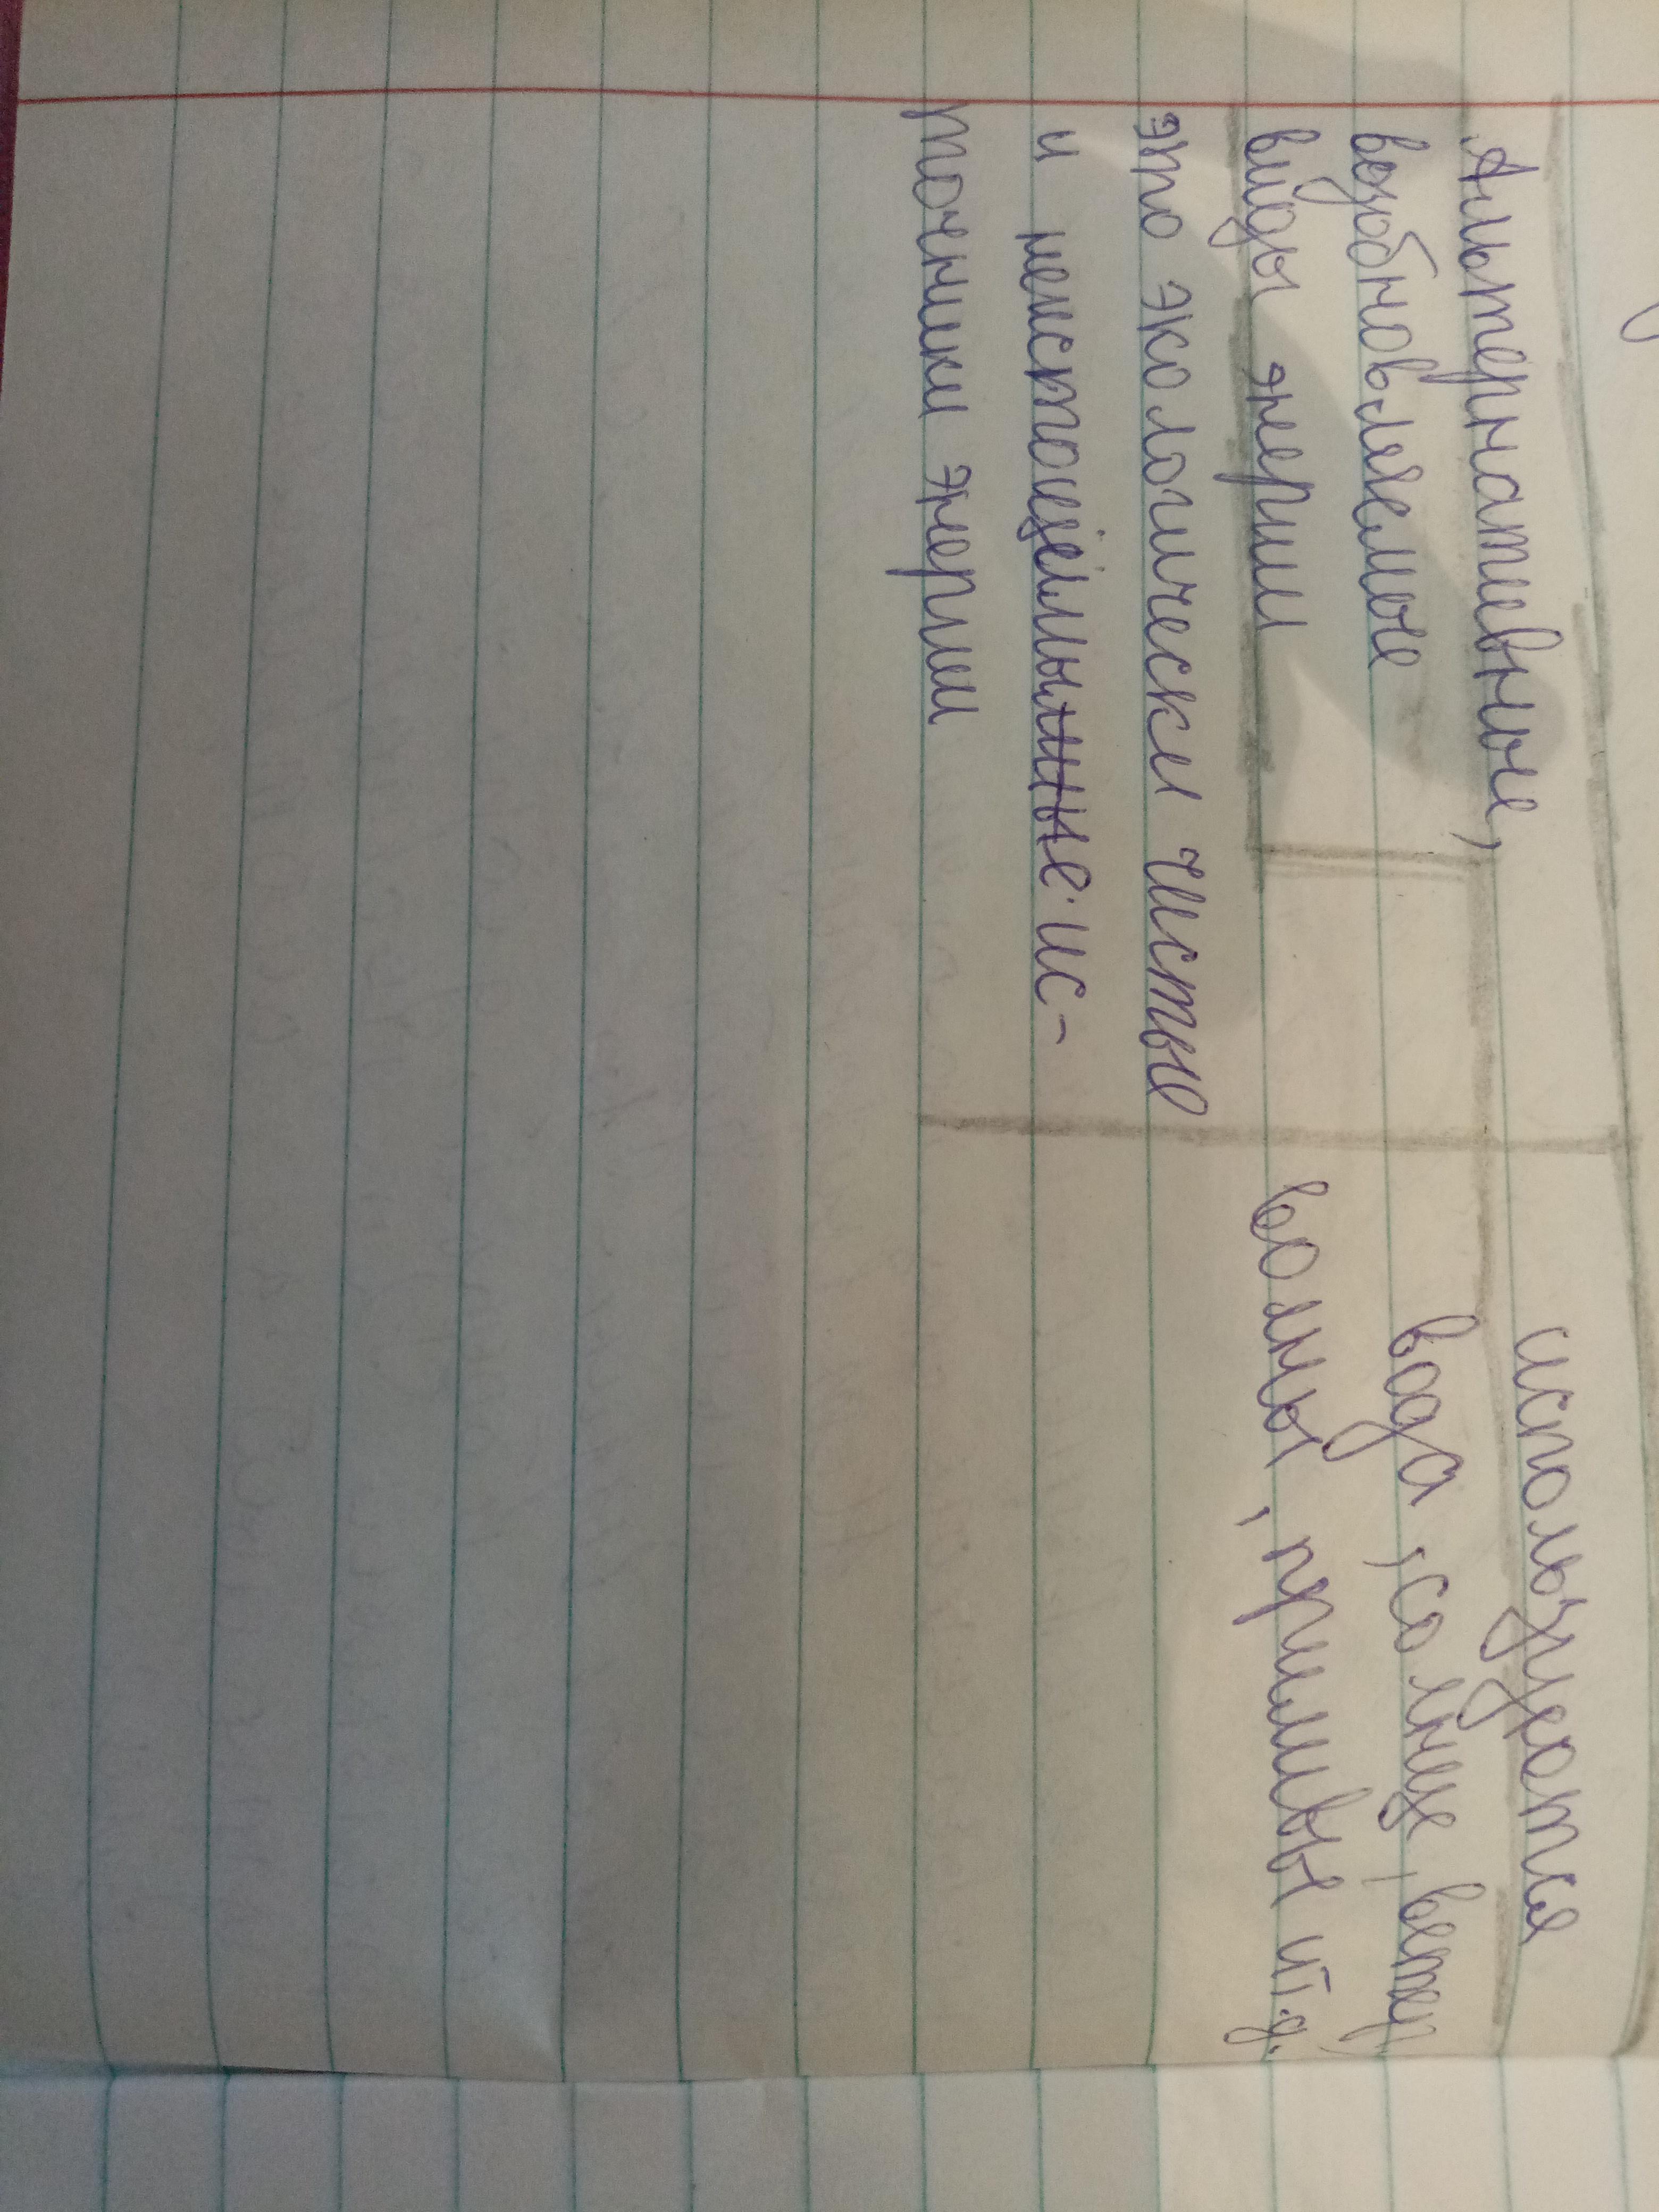 Альтернативные,
возобновляемые
виды энергии
это экологически чистые
и неистощимые ис-
точники энергии
используются
вода, солнце, ветер,
волны, приливы и т.д.